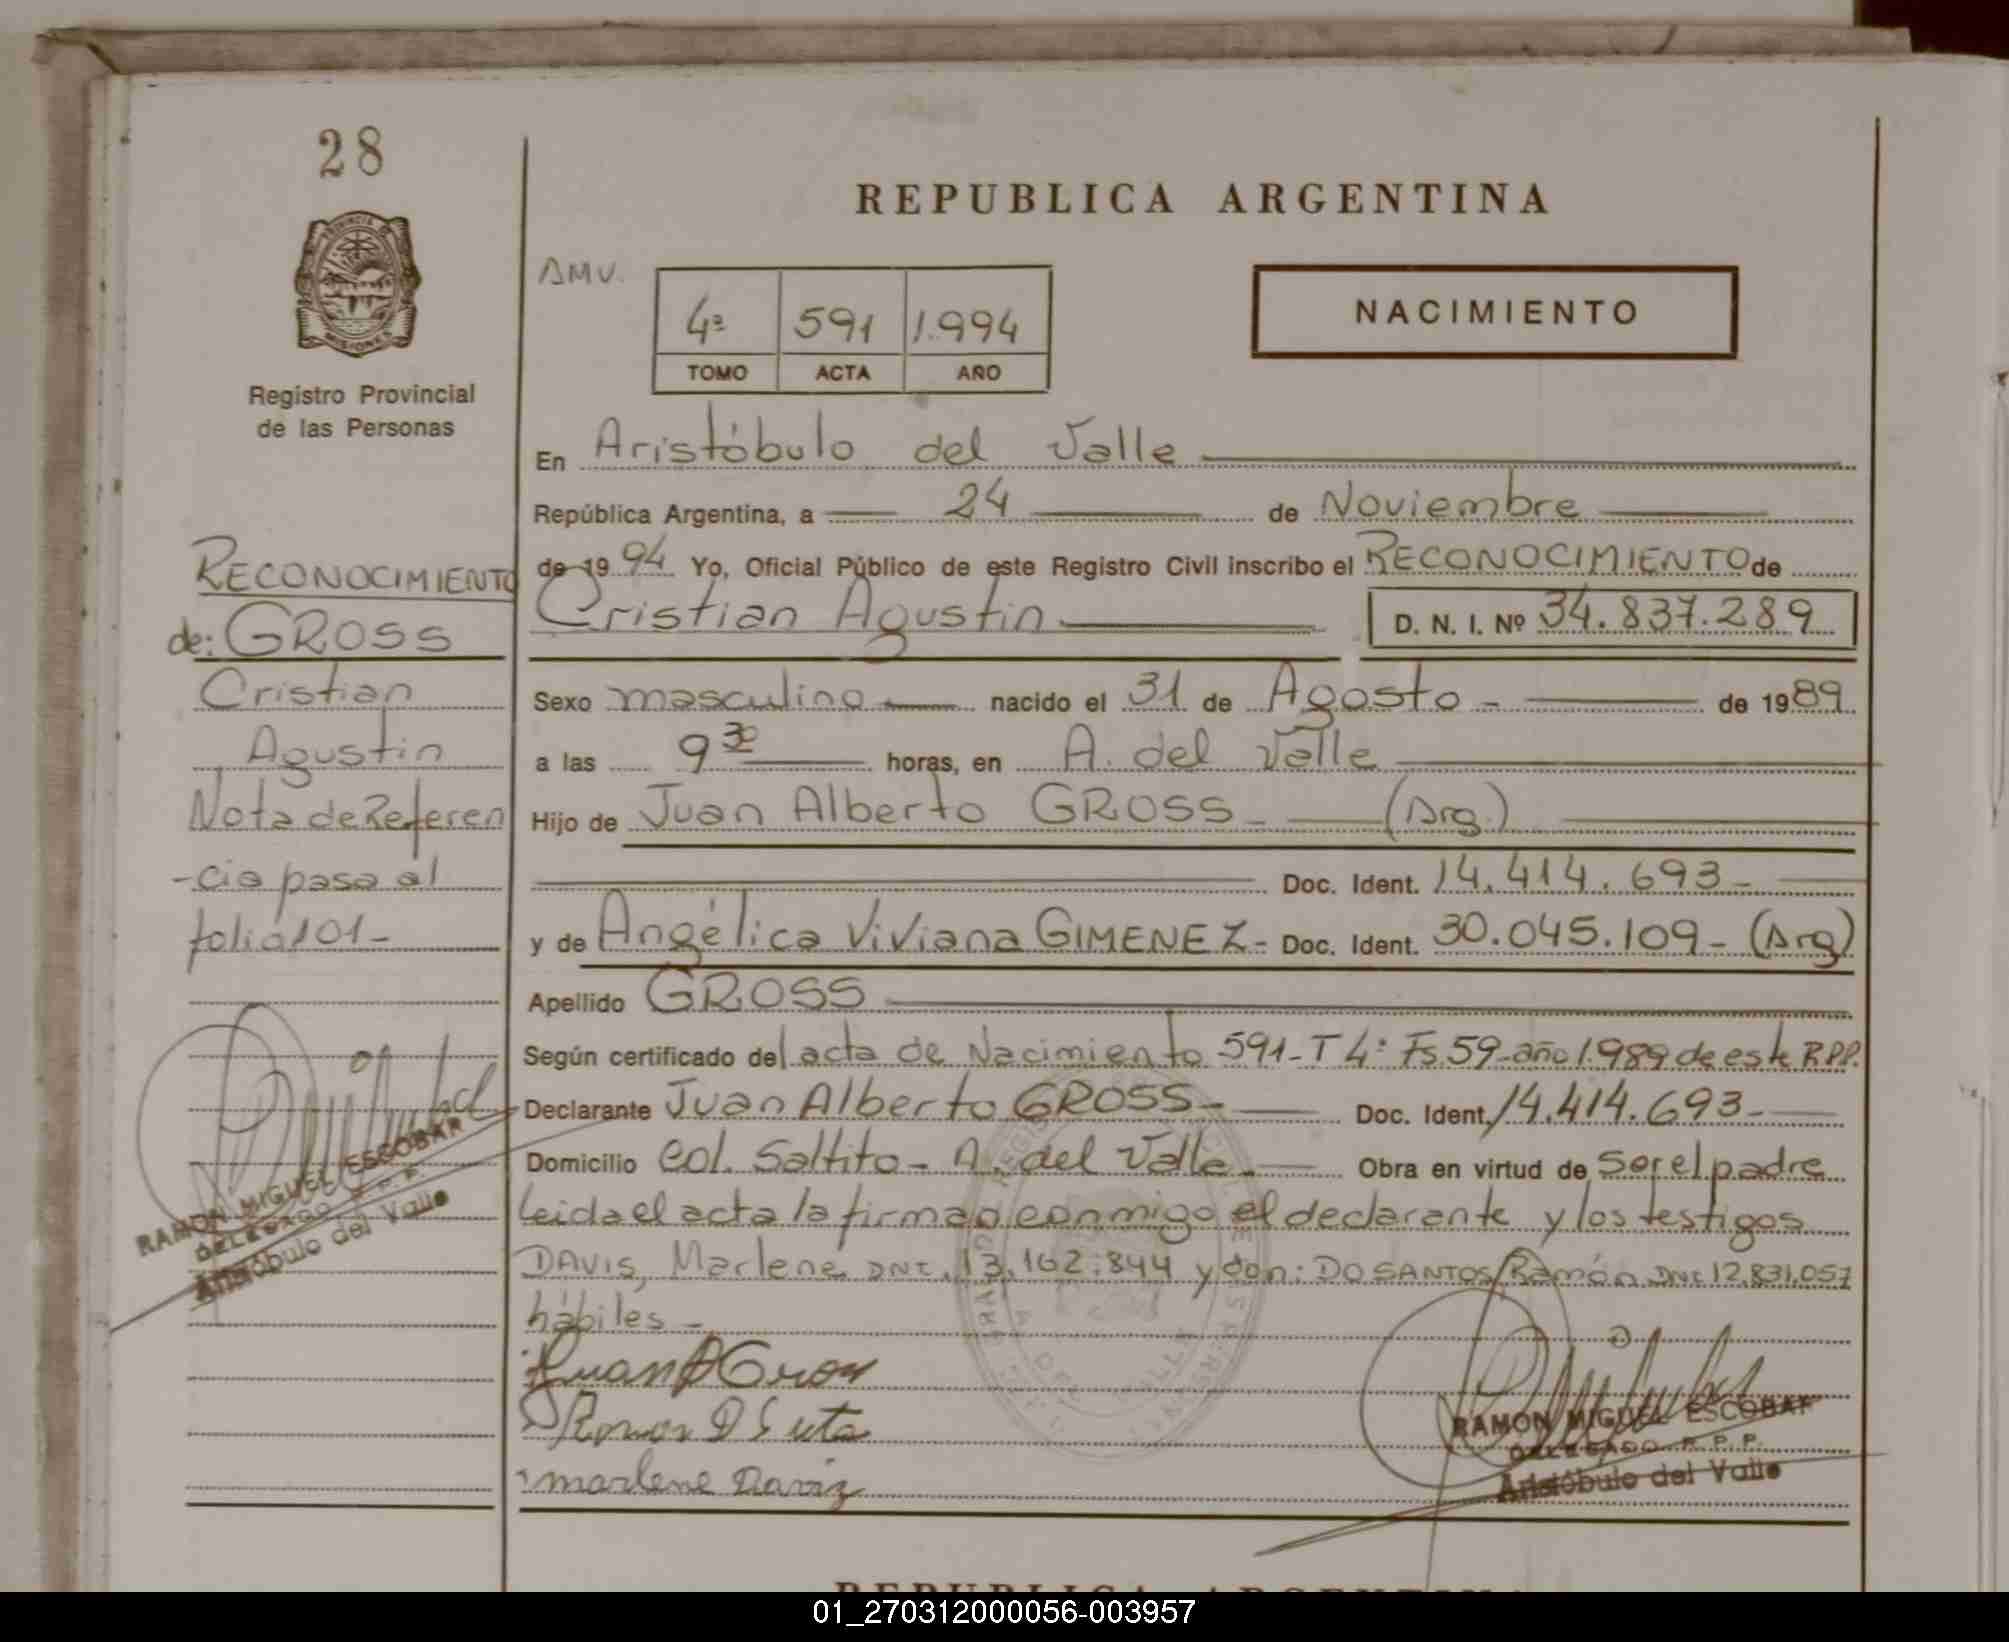 28
REPUBLICA ARGENTINA
PROVINCIA DE
MISIONES
Registro Provincial
de las Personas
AMV.
4ª 591 1.994
TOMO ACTA AÑO
NACIMIENTO
En Aristóbulo del Valle
República Argentina, a 24 de Noviembre
de 19 94 Yo, Oficial Público de este Registro Civil inscribo el RECONOCIMIENTO de
Cristian Agustin D. N. I. Nº 34.837.289
Sexo masculino nacido el 31 de Agosto - de 1989
a las 9 30 horas, en A. del Valle
Hijo de Juan Alberto GROSS - (Arg.)
Doc. Ident. 14.414.693-
y de Angélica Viviana GIMENEZ- Doc. Ident. 30.045.109- (Arg)
Apellido GROSS
Según certificado del acta de Nacimiento 591-T 4: Fs.59-año 1.989 de este R.P.P.
Declarante Juan Alberto GROSS- Doc. Ident. 14.414.693-
Domicilio Col. Saltito - A. del Valle- Obra en virtud de Ser el padre
Leida el acta la firman conmigo el declarante y los testigos
DAVIS, Marlene DNI. 13.162.844 y don: DO SANTOS Ramón DNI 12.831.057
hábiles -
Juan A Gross
Ramon D
marlene Daviz
RAMON MIGUEL ESCOBAR
DELEGADO R. P. P.
Aristóbulo del Valle
RECONOCIMIENTO
de: GROSS
Cristian
Agustin
Nota de Referen
-cia pasa al
folio 101-
RAMON MIGUEL ESCOBAR
DELEGADO R. P. P.
Aristóbulo del Valle
REPUBLICA ARGENTINA
01_270312000056-003957